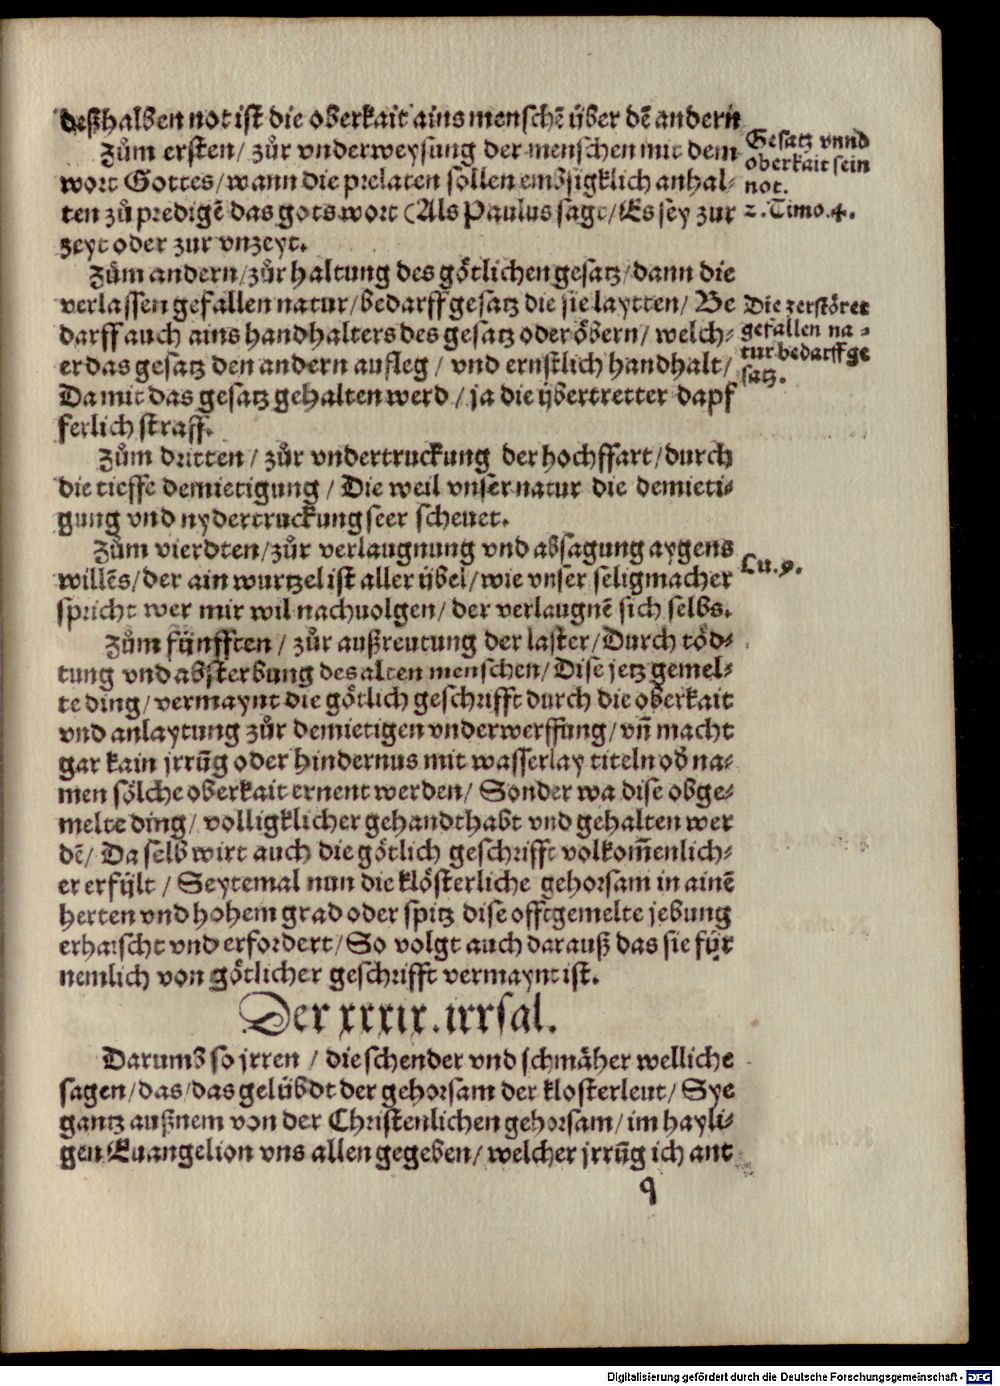 deßhalben not ist die oberkait ains menschē über dē andern
Zům ersten/ zůr vnderweysung der menschen mit dem
wort Gottes/wann die prelaten sollen embsigklich anhal⸗
ten zů predigē das gots wort (Als Paulus sagt/Es sey zur
zeyt oder zur vnzeyt.
Gesatz vnnd
oberkait sein
not.
2. Timo.4.
Zům andern/zůr haltung des götlichen gesatz/dann die
verlassen gefallen natur/bedarff gesatz die sie laytten/ Be
darff auch ains handhalters des gesatz oder öbern/ welch⸗
er das gesatz den andern aufleg / vnd ernstlich handhalt/
Damit das gesatz gehalten werd / ja die übertretter dapf
ferlich straff.
Die zerstöret
gefallen na⸗
tur bedarff ge
satz.
Zům dritten / zůr vndertruckung der hochffart/durch
die tieffe demietigung / Die weil vnser natur die demieti⸗
gung vnd nydertruckung seer scheuet.
Zům vierdten/zůr verlaugnung vnd absagung aygens
willēs/der ain wurtzel ist aller übel/wie vnser seligmacher
spricht wer mir wil nachuolgen/ der verlaugnē sich selbs.
Lu.9.
Zům fünfften / zůr außreutung der laster/Durch töd⸗
tung vnd absterbung des alten menschen/Dise jetz gemel⸗
te ding/vermaynt die götlich geschrifft durch die oberkait
vnd anlaytung zůr demietigen vnderwerffung/vn̄ macht
gar kain jrrūg oder hindernus mit wasserlay titeln od̄ na⸗
men sölche oberkait ernent werden/ Sonder wa dise obge⸗
melte ding/ volligklicher gehandthabt vnd gehalten wer
dē/ Da selb wirt auch die götlich geschrifft volkom̄enlich⸗
er erfült / Seytemal nun die klösterliche gehorsam in ainē
herten vnd hohem grad oder spitz dise offtgemelte jebung
erhaischt vnd erfordert/So volgt auch darauß das sie für
nemlich von götlicher geschrifft vermaynt ist.
Der xxxix. irrsal.
Darumb so jrren / die schender vnd schmäher welliche
sagen/das/das gelübdt der gehorsam der klosterleut/ Sye
gantz außnem von der Christenlichen gehorsam/im hayli⸗
gen Euangelion vns allen gegeben/welcher jrrūg ich ant
q
Digitalisierung gefördert durch die Deutsche Forschungsgemeinschaft - DFG